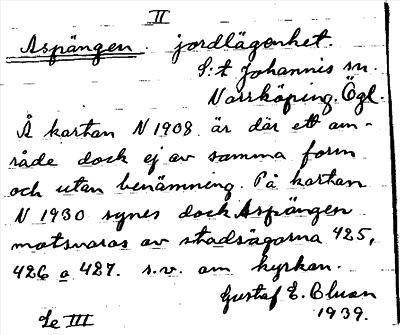 II
Aspängen. jordlägenhet.
S:t Johannis sn.
Norrköping. Ögl.
Å kartan N 1908 är där ett om-
råde dock ej av samma form
och utan benämning. På kartan
N 1930 synes dock Aspängen
motsvaras av stadsägorna 425,
426 o 427. s.v. om kyrkan.
Gustaf E.
1939.
Se III